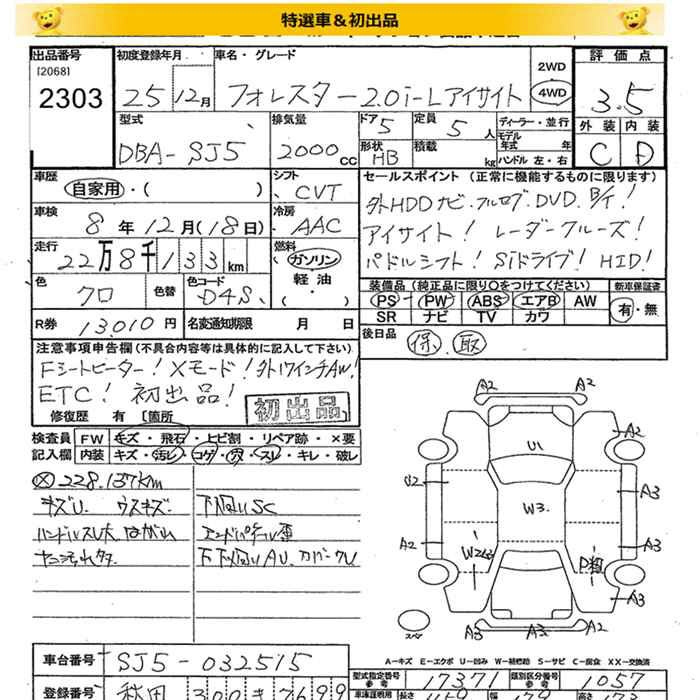 特選車＆初出品
出品番号 初度登録年月 車名・グレード 2WD 評価点
[2068]
2303 25 12月 フォレスター2.0i-Lアイサイト 4WD 3.5
型式 排気量 ドア 定員 ディーラー・並行 外装 内装
DBA-SJ5 2000cc 5 5人 モデル年式 年 C D
形状 HB 積載 kg ハンドル 左・右
車歴 シフト セールスポイント (正常に機能するものに限ります)
自家用・( ) CVT 外HDDナビ.フルセグ.DVD.B/T!
車検 8年12月(18日) 冷房 AAC アイサイト! レーダークルーズ!
走行 22万8千133km 燃料 ガソリン 軽油・( ) パドルシフト! Siドライブ! HID!
色 クロ 色替 色コード D4S 装備品 (純正品に限り〇をつけてください) 新車保証書
PS PW ABS エアB AW 有・無
SR ナビ TV カワ
R券 13010円 名変通知期限 月 日 後日品 保 取
注意事項申告欄 (不具合内容等は具体的に記入して下さい)
Fシートヒーター! Xモード! 外17インチAW!
ETC! 初出品! 初出品
修復歴 有 [箇所
検査員 FW キズ・飛石・ヒビ割・リペア跡・×要
記入欄 内装 キズ・汚レ・コゲ・穴・スレ・キレ・破レ
228.137km
キズU. ウスキズ. 下廻りSC
A2 A2
A2 U1 A2
U2 W3. A3
A2 W2 A3
A3
スペア A3 A3 A2
A−キズ E−エクボ U−凹み W−補修跡 S−サビ C−腐食 XX−交換済
車台番号 SJ5-032515 型式指定番号 参考 17371 類別区分番号 参考 1057
登録番号 秋田 300 き 7699 車庫証明用 長さ 幅 高さ